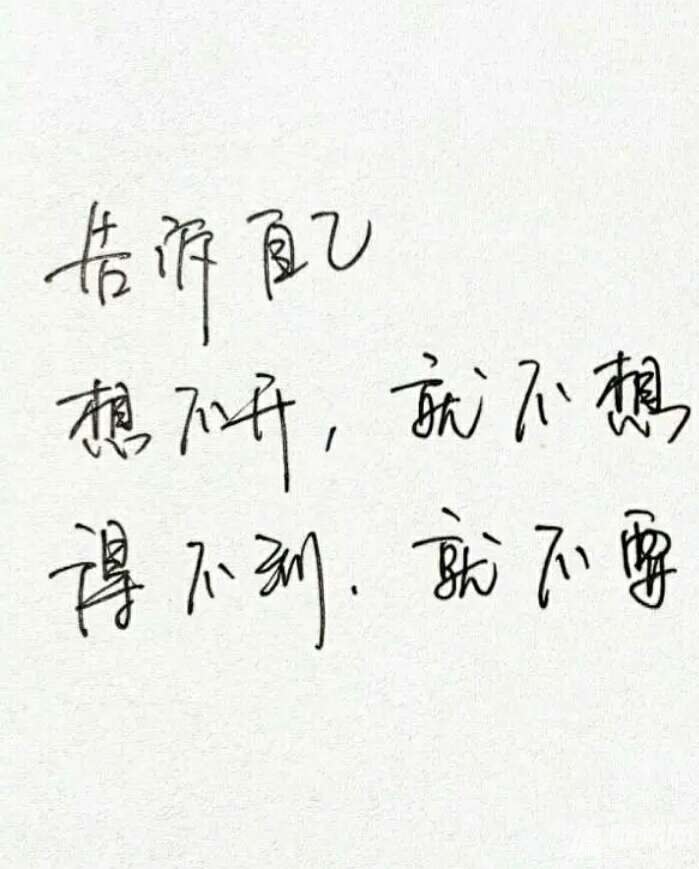 告诉自己
想不开，就不想
得不到．就不要